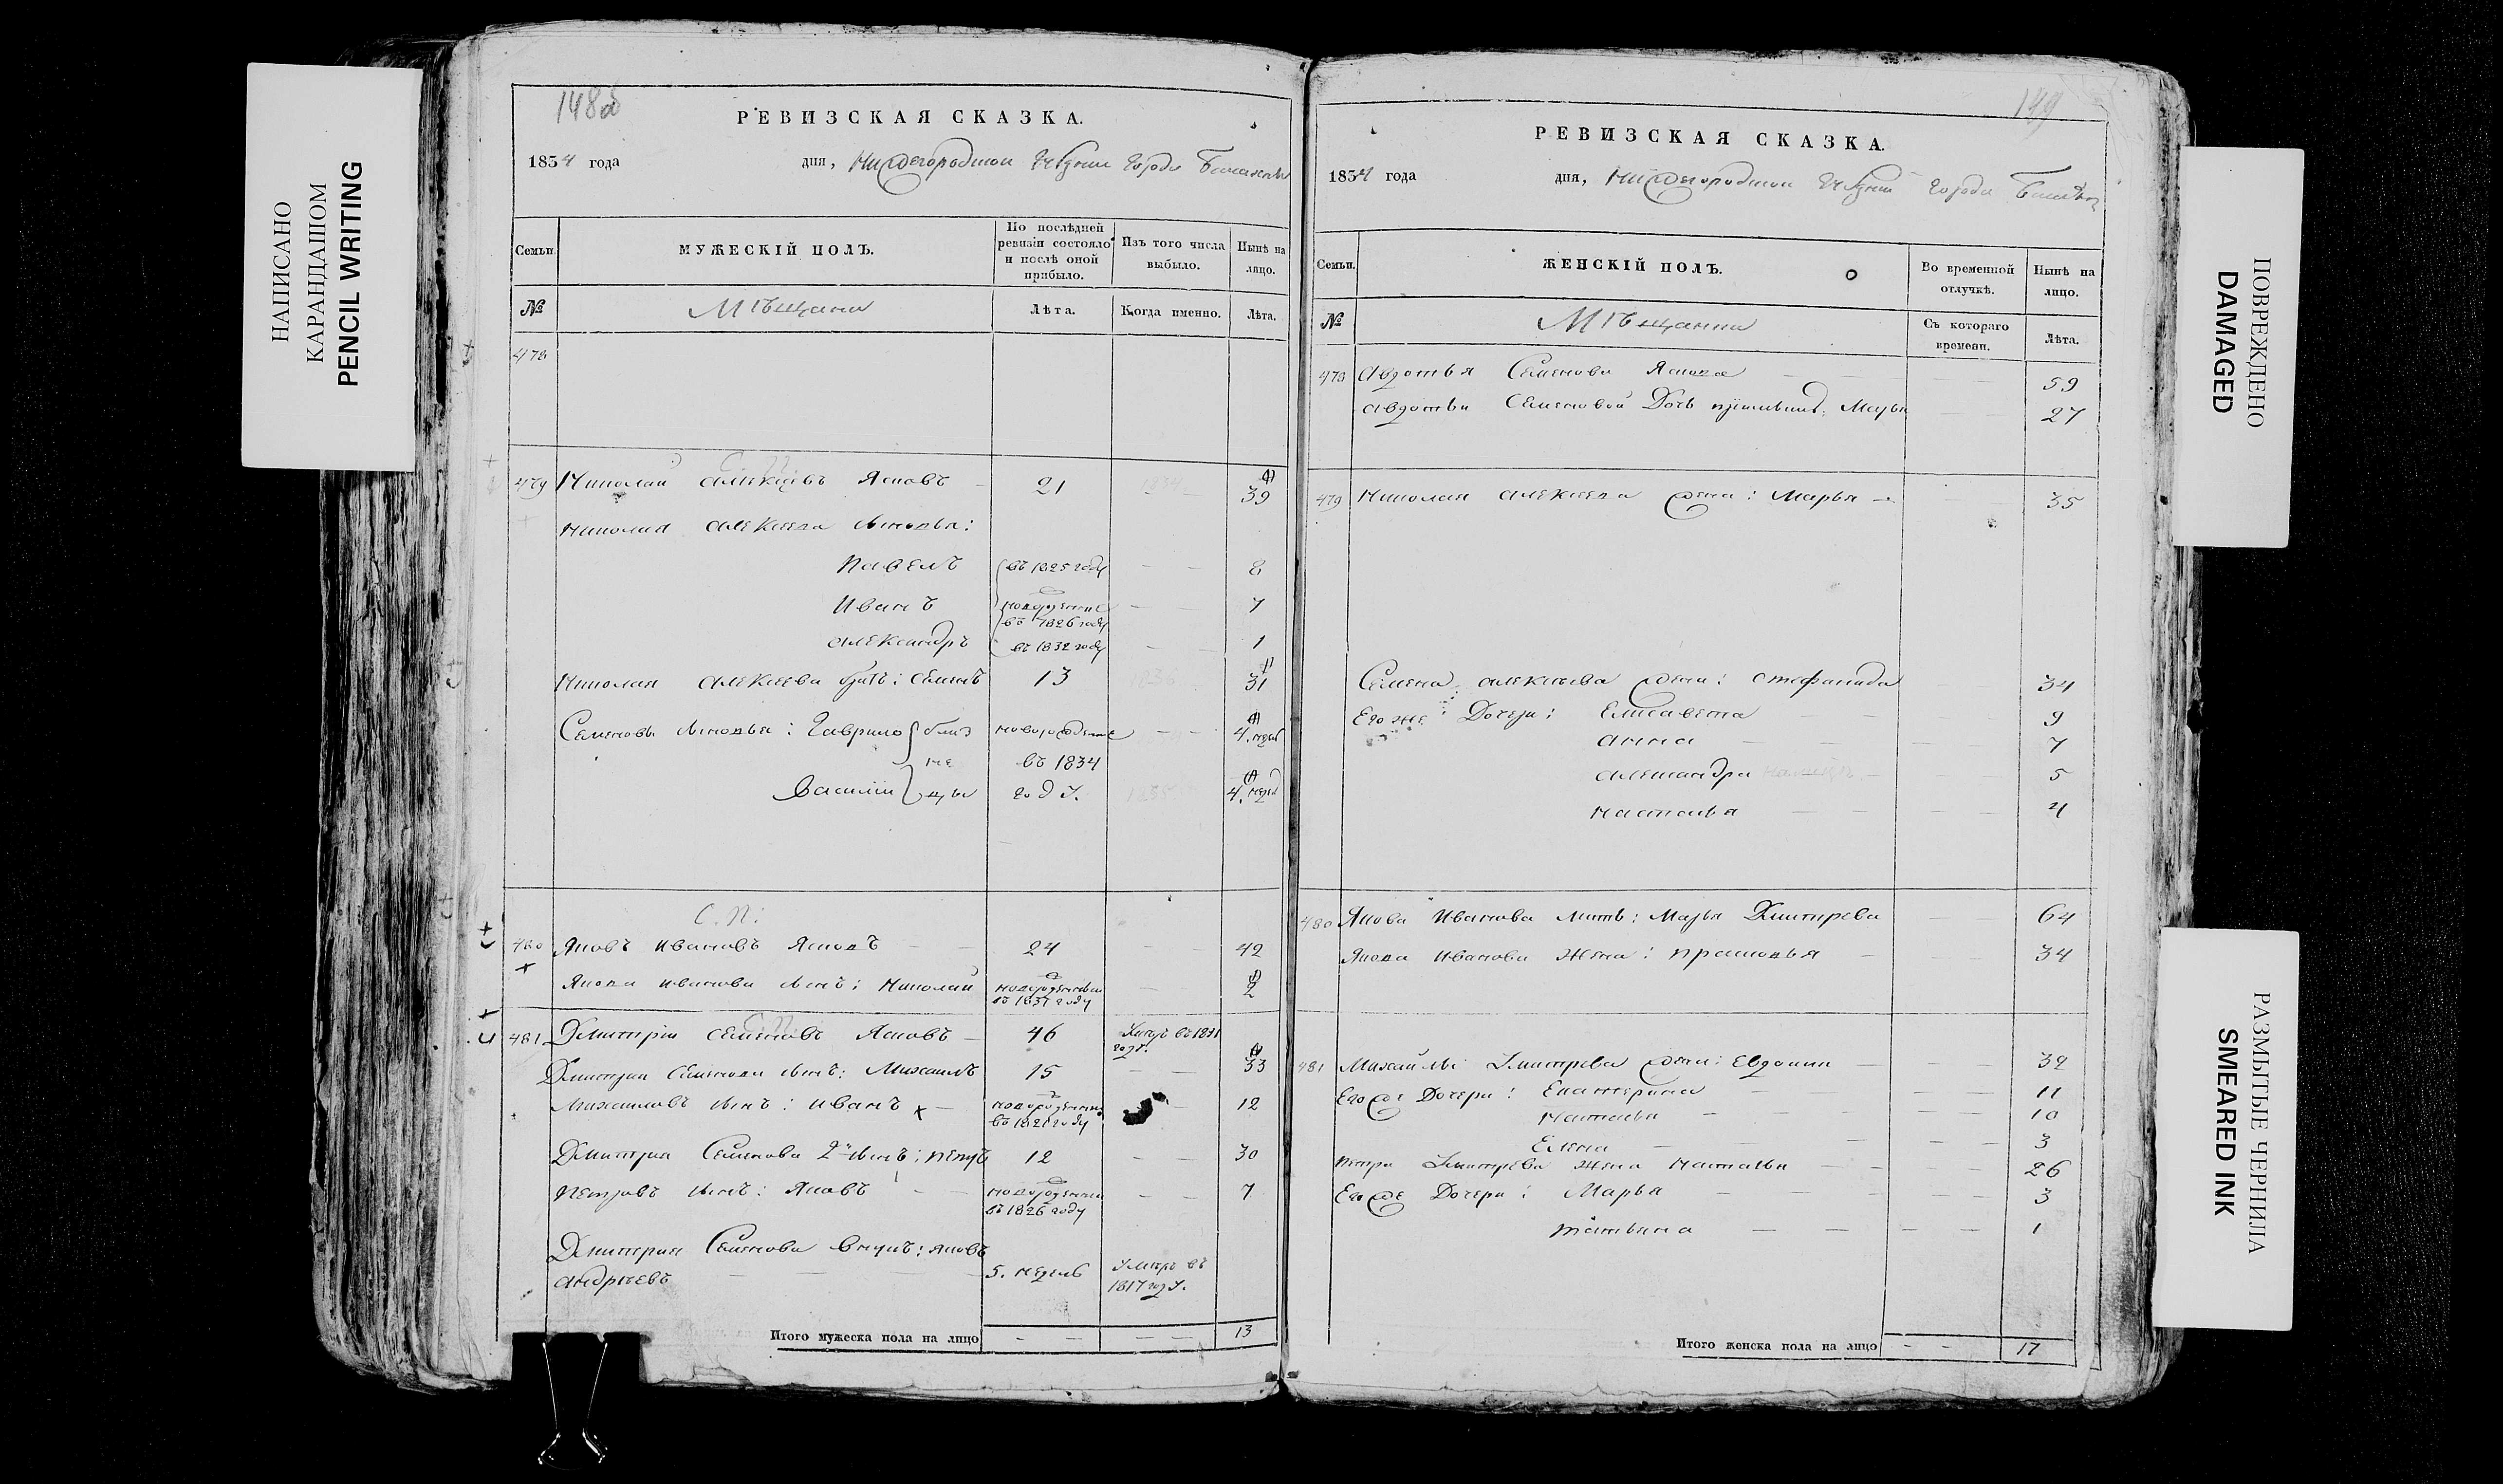 НАПИСАНО
КАРАНДАШОМ
PENCIL WRITING
148об
РЕВИЗСКАЯ СКАЗКА.
1834 года дня, Нижегородской Губернии города
Семьи. МУЖЕСКІЙ ПОЛЪ. По послѣдней ревизіи состояло и послѣ оной прибыло. Изъ того числа выбыло. Нынѣ на лицо.
№ Мѣщане Лѣта. Когда именно. Лѣта.
478
479 Николай Алексѣевъ Ясновъ 21 39
Николая Алексѣева сыновья:
Павелъ въ 1825 году 8
Иванъ новорожденные въ 1826 году 7
Александръ въ 1832 году 1
Николая Алексѣева братъ: Семенъ 13 31
Семеновы сыновья: Гаврило близ новорожденные 4. недел
не въ 1834
Василій цы году. 4. недел
С. П:
480 Яковъ Ивановъ Ясновъ 24 42
Якова Иванова сынъ: Николай новорожденный въ 1831 году 2
481 Дмитрій Семеновъ Ясновъ 46 Умеръ въ 1831 годѣ.
Дмитрія Семенова сынъ: Михаилъ 15 33
Михаиловъ сынъ: Иванъ новорожденный въ 1821 году 12
Дмитрія Семенова 2й сынъ: Петръ 12 30
Петровъ сынъ: Яковъ новорожденный въ 1826 году 7
Дмитрія Семенова внукъ: Яковъ
Андрѣевъ 5. недель Умеръ въ 1817 году.
Итого мужеска пола на лицо 13
149
РЕВИЗСКАЯ СКАЗКА.
1834 года дня, Нижегородской Губерніи города
Семьи. ЖЕНСКІЙ ПОЛЪ. Во временной отлучкѣ. Нынѣ на лицо.
№ Мѣщанки Съ котораго времени. Лѣта.
478 Авдотья Семенова Яснова 59
Авдотьи Семеновой Дочь Марья 27
479 Николая Алексѣева жена: Марья 35
Семена Алексѣева жена: Стефанида 34
Его же Дочери: Елисавета 9
Анна 7
Александра 5
Наталья 4
480 Якова Иванова мать: Марья Дмитрева 64
Якова Иванова жена: Прасковья 34
481 Михайлы Дмитрева жена: Евдокия 32
Его же Дочери: Екатерина 11
Наталья 10
Елена 3
Петра Дмитрева жена Наталья 26
Его же Дочери: Марья 3
Татьяна 1
Итого женска пола на лицо 17
ПОВРЕЖДЕНО
DAMAGED
РАЗМЫТЫЕ ЧЕРНИЛА
SMEARED INK